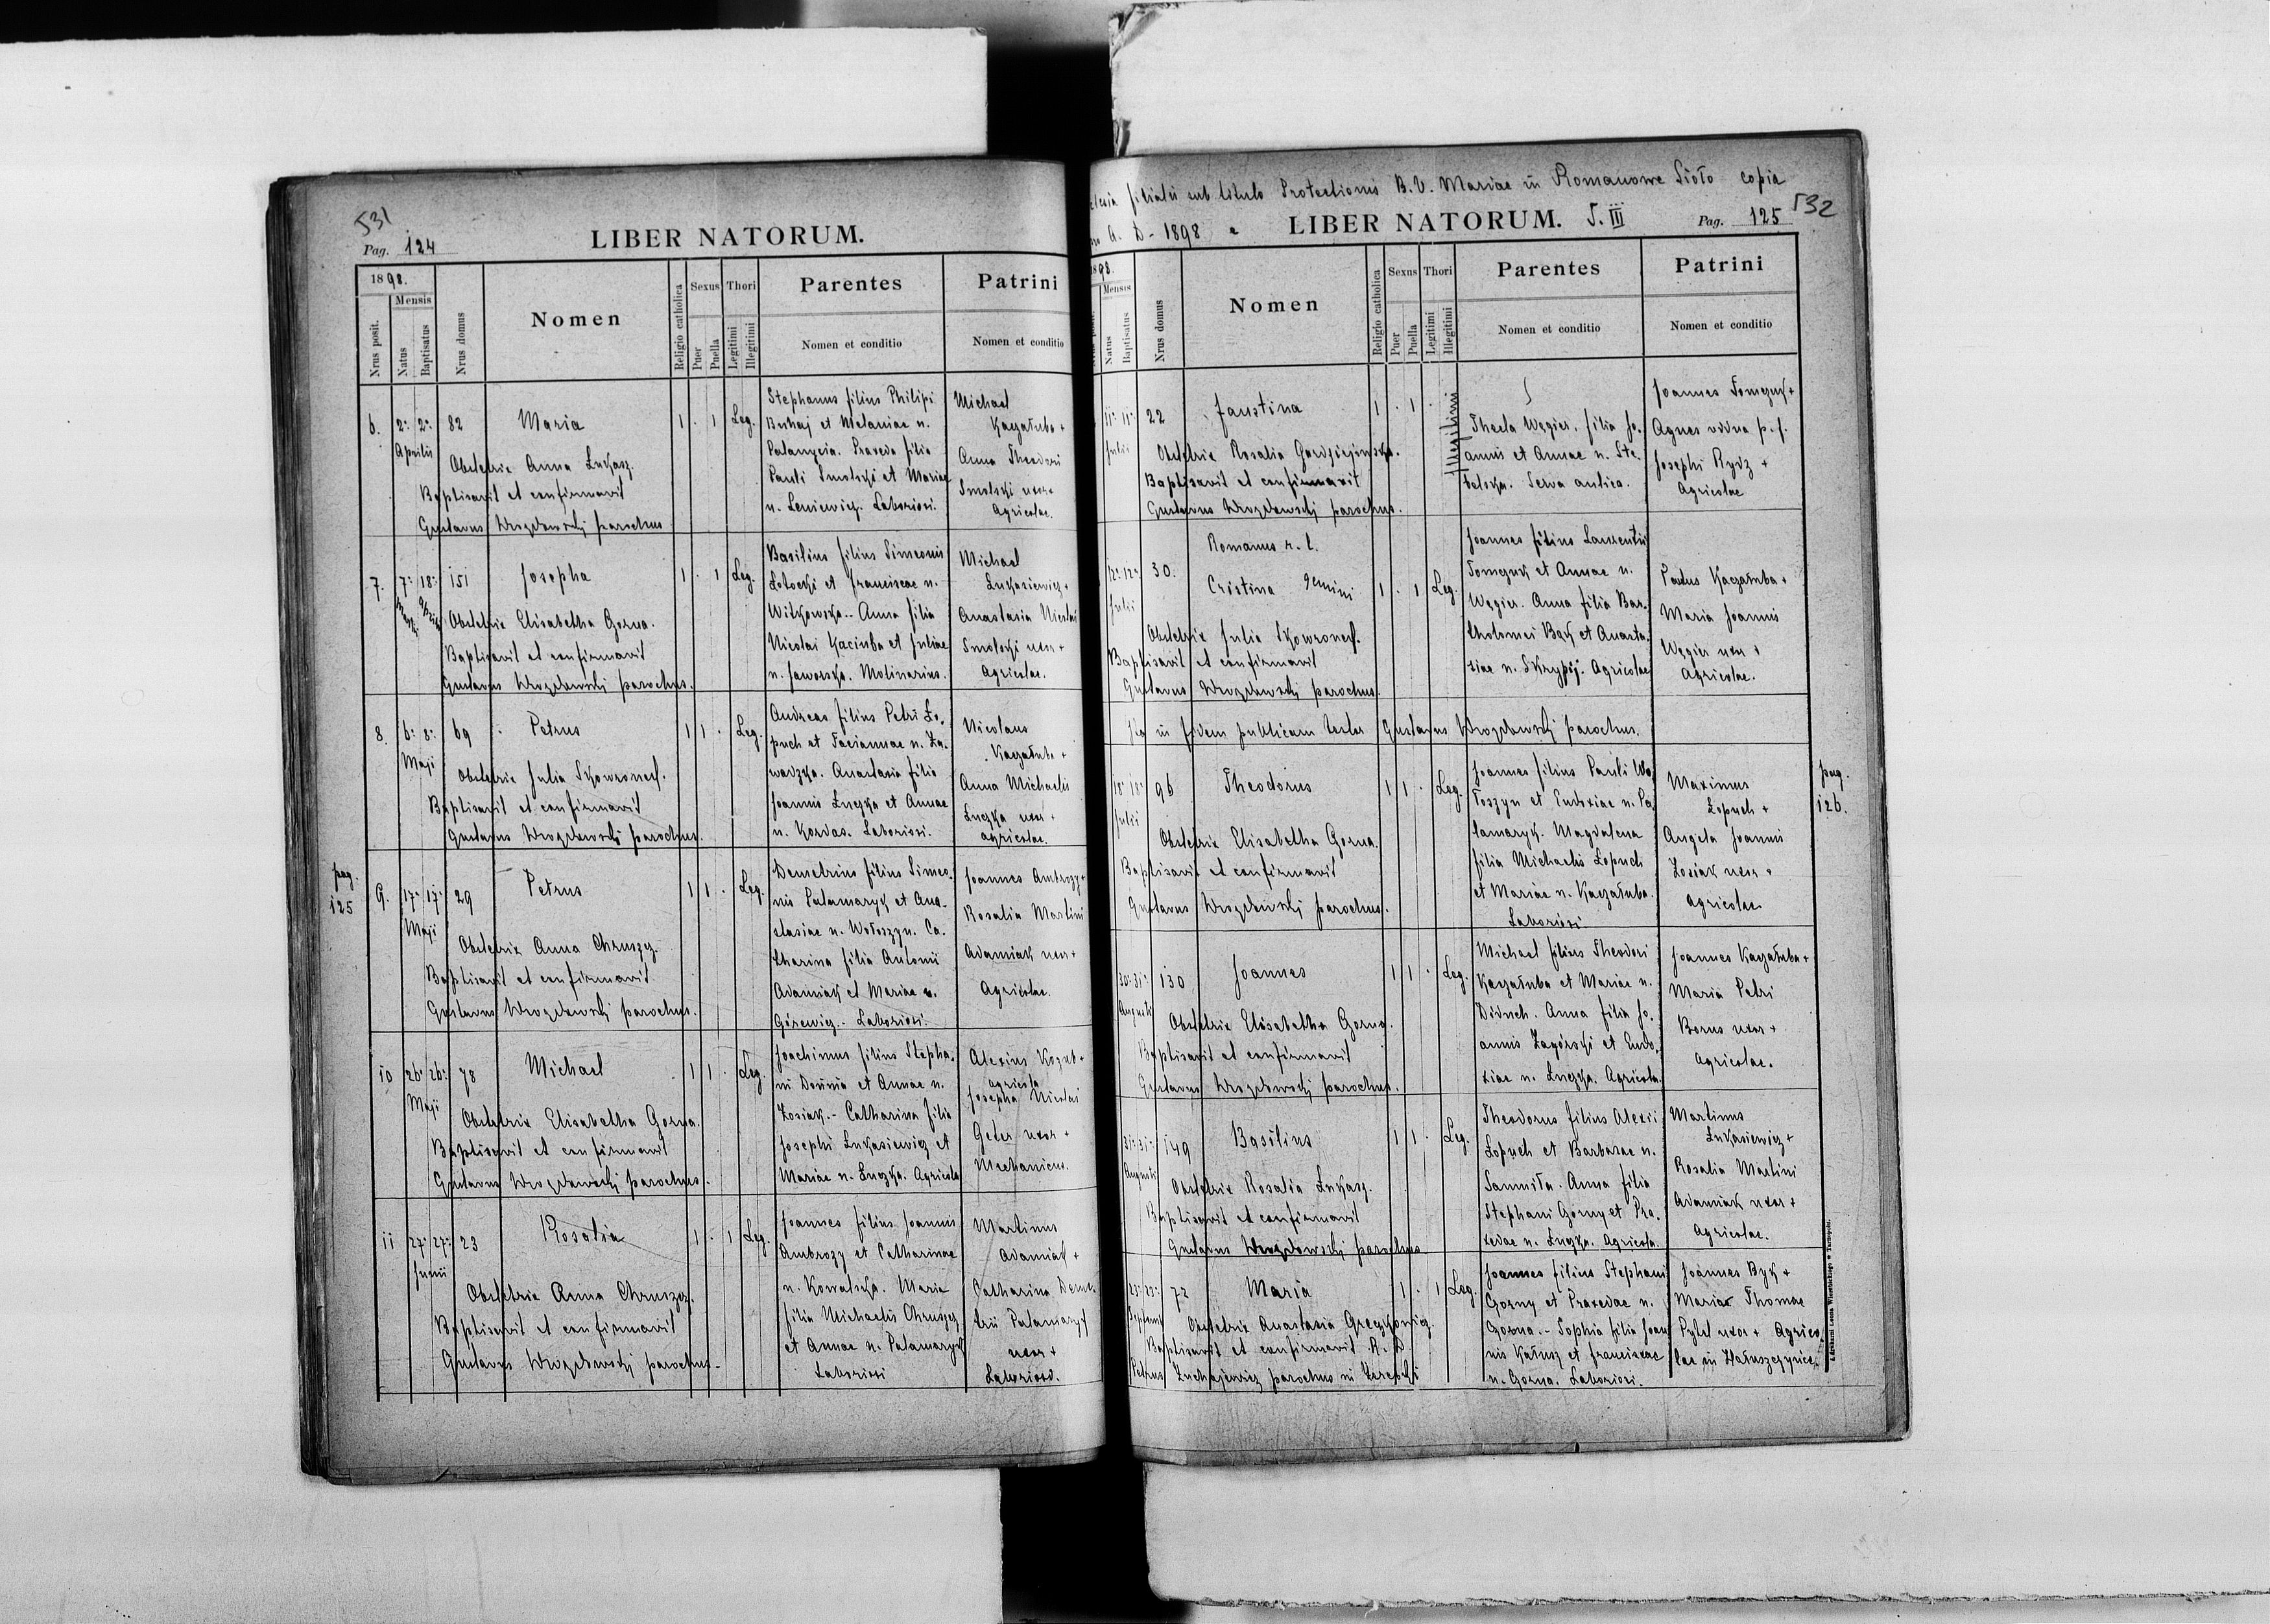 531
Pag. 124
LIBER NATORUM.
1898.
Mensis
Nrus posit.
Natus
Baptisatus
Nrus domus
Nomen
Religio catholica
Sexus
Puer
Puella
Thori
Legitimi
Illegitimi
Parentes
Nomen et conditio
Patrini
Nomen et conditio
6. 2. 2. 82 Maria 1 . 1 Leg.
Aprilis
Obstetrix Anna Łukasz.
Baptisavit et confirmavit
Gustavus Wrozdowskj parochus
Stephanus filius Philipi
Buhaj et Melaniae n.
Palanycia. Praxeda filia
Pauli Smolski et Mariae
n. Leniewicz. Laboriosi.
Michael
Kaczałuba +
Anna Theodori
Smolski uxor
Agricolae.
7. 7. 18. 151 Josepha 1 . 1 Leg.
Obstetrix Elisabetha Gorna.
Baptisavit et confirmavit
Gustavus Wrozdowskj parochus.
Basilius filius Simeonis
Lotocki et Franciscae n.
Witkowska.- Anna filia
Nicolai Kaciuba et Juliae
n. Jaworska. Molinarius.
Michael
Łukasiewicz +
Anastasia Nicolai
Smolski uxor +
Agricolae.
8. 6. 8. 69 Petrus 1 1 . Leg.
Maji
Obstetrix Julia Skowronek.
Baptisavit et confirmavit
Gustavus Wrozdowskj parochus.
Andreas filius Petri Ło-
puch et Taciannae n. Za-
wadzka. Anastasia filia
Joannis Łuczka et Annae
n. Kordas. Laboriosi.
Nicolaus
Kaczałuba +
Anna Michaelis
Łuczka uxor +
agricolae.
pag.
125
9. 17. 17. 29 Petrus 1 1 . Leg.
Maji
Obstetrix Anna Chruszcz.
Baptisavit et confirmavit
Gustavus Wrozdowskj parochus.
Demetrius filius Simeo-
nis Palamaryk et Ana-
stasiae n. Wołoszyn. Ca-
tharina filia Antonii
Adamiak et Mariae n.
Górewicz.- Laboriosi.
Joannes Ambrozy +
Rosalia Martini
Adamiak uxor +
Agricolae.
10 26. 26. 78 Michael 1 1 . Leg.
Maji
Obstetrix Elisabetha Gorna.
Baptisavit et confirmavit
Gustavus Wrozdowskj parochus.
Joachimus filius Stepha-
ni Dounia et Annae n.
Zosiak.- Catharina filia
Josephi Łukasiewicz et
Mariae n. Łuczka. Agricola
Alexius Kozub +
agricola
Josepha Nicolai
Geler uxor +
Mechanicus.
11 27. 27. 23 Rosalia 1 . 1 Leg.
Junii
Obstetrix Anna Chruszcz.
Baptisavit et confirmavit
Gustavus Wrozdowskj parochus.
Joannes filius Joannis
Ambrozy et Catharinae
n. Kowalska. Maria
filia Michaelis Chruszcz
et Annae n. Palamaryk
Laboriosi
Martinus
Adamiak +
Catharina Deme-
trii Palamaryk
uxor +
Laboriosi.
filialis sub titulo Protectionis B.V. Mariae in Romanowe Sioło copia
A. D. 1898
LIBER NATORUM. T. III
Pag. 125
532
Mensis
Natus
Baptisatus
Nrus domus
Nomen
Religio catholica
Sexus
Puer
Puella
Thori
Legitimi
Illegitimi
Parentes
Nomen et conditio
Patrini
Nomen et conditio
11. 11. 22 Faustina 1 . 1 . Illegitimi
Julii
Obstetrix Rosalia Gwdziejowska.
Baptisavit et confirmavit
Gustavus Wrozdowskj parochus.
Thecla Węgier, filia Jo-
annis et Annae n. Ste-
belska. Serva aulica.
Joannes Tomczuk +
Agnes vidua p. f.
Josephi Rydz +
Agricolae
12. 12. 30. Romanus r. l.
Cristina gemini 1 . 1 Leg.
Julii
Obstetrix Julia Skowronek.
Baptisavit et confirmavit
Gustavus Wrozdowskj parochus.
Joannes filius Laurentii
Tomczuk et Annae n.
Węgier. Anna filia Bar-
tholomei Bąk et Anasta-
siae n. Skrypij. Agricolae
Paulus Kaczałuba +
Maria Joannis
Węgier uxor +
Agricolae.
in fidem publicam testor Gustavus Wrozdowskj parochus.
18 18 96 Theodorus 1 1 . Leg.
Julii
Obstetrix Elisabetha Gorna.
Baptisavit et confirmavit
Gustavus Wrozdowskj parochus.
Joannes filius Pauli Wo-
łoszyn et Eudoxiae n. Pa-
lamaryk. Magdalena
filia Michaelis Łopuch
et Mariae n. Kaczałuba.
Laboriosi
Maximus
Łopuch +
Angela Joannis
Zosiak uxor +
agricolae
pag.
126.
30. 31. 130 Joannes 1 1 . Leg.
Augusti
Obstetrix Elisabetha Gorna.
Baptisavit et confirmavit
Gustavus Wrozdowskj parochus.
Michael filius Theodori
Kaczałuba et Mariae n.
Diduch. Anna filia Jo-
annis Zagórski et Eudo-
xiae n. Łuczka. Agricola.
Joannes Kaczałuba +
Maria Petri
Borus uxor +
agricolae.
31. 31. 149 Basilius 1 1 . Leg.
Augusti
Obstetrix Rosalia Łukasz.
Baptisavit et confirmavit
Gustavus Wrozdowskj parochus
Theodorus filius Alexii
Łopuch et Barbarae n.
Sanniła. Anna filia
Stephani Gorny et Pra-
xedae n. Łuczka. Agricola.
Martinus
Łukasiewicz +
Rosalia Martini
Adamiak uxor +
Agricolae.
25. 25. 72 Maria 1 . 1 Leg.
Septemb
Obstetrix Anastasia Greczkowicz.
Baptisavit et confirmavit R. D
Petrus Łuchajewicz parochus in
Joannes filius Stephani
Gorny et Praxedae n.
Gorna.- Sophia filia Joan-
nis Kałusz et Franciscae
n. Gorna. Laboriosi.
Joannes Byk +
Maria Thomae
Pytel uxor + Agrico-
lae in Hałuszczyńce